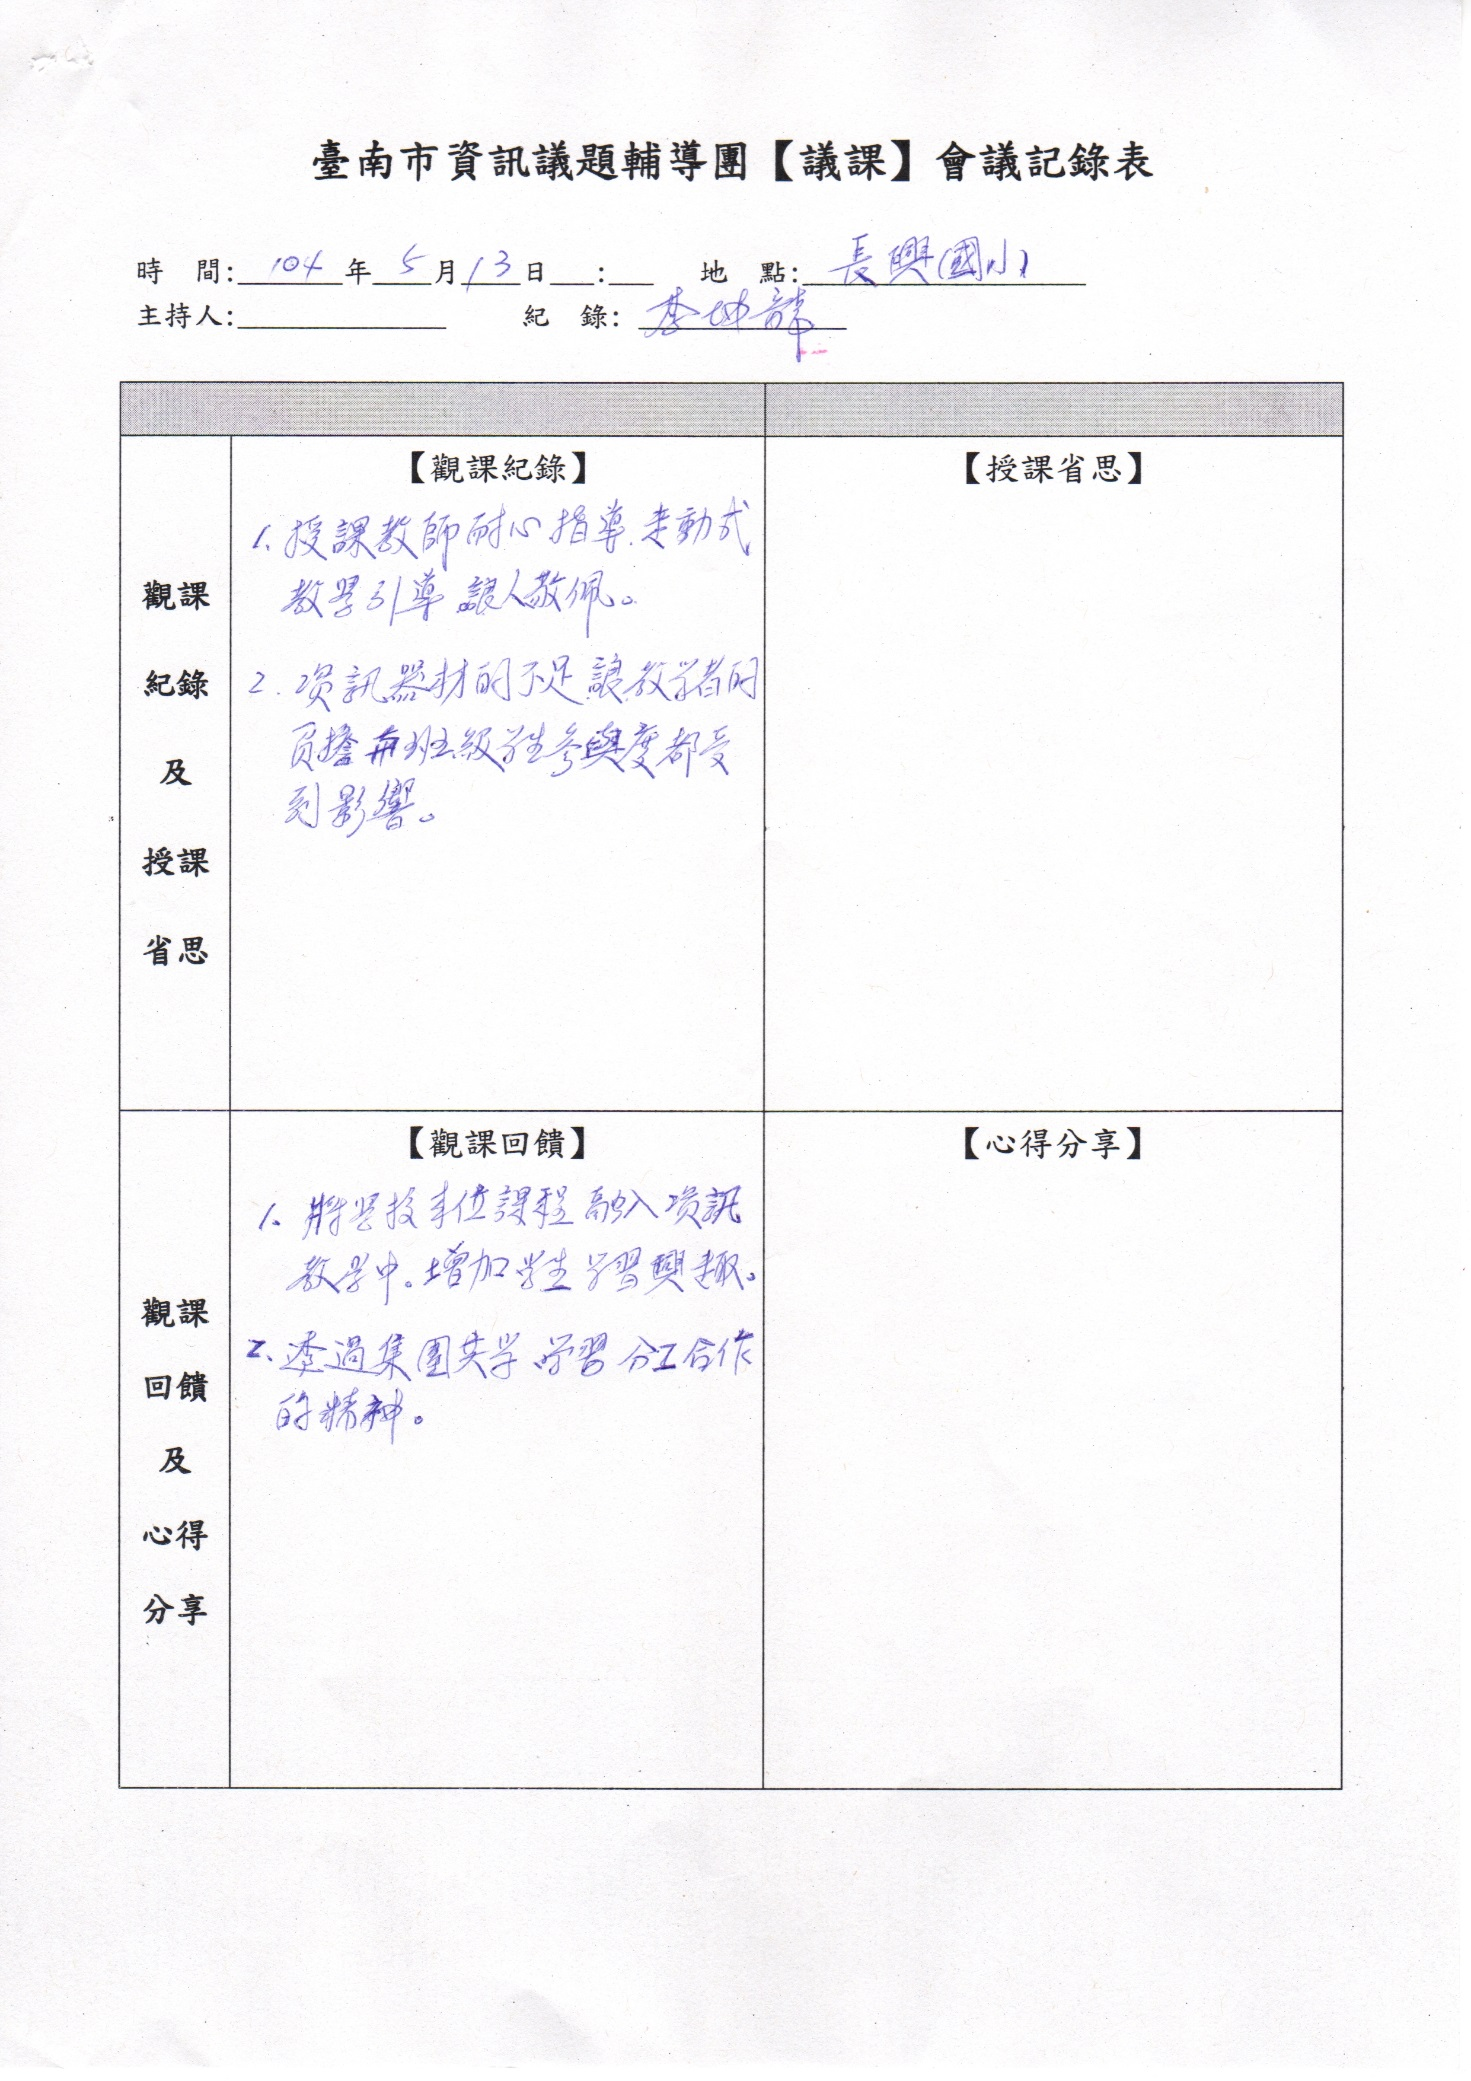 臺南市資訊議題輔導團【議課】會議記錄表
時 間:104年5月13日__:__ 地 點:長興國小
主持人: 紀 錄: 李坤
【觀課紀錄】 【授課省思】
1. 授課教師耐心指導.走動式
教學引導 讓人敬佩。
2. 資訊器材的不足 讓教學者的
負擔 和班級學生參與度都受
到影響。
觀課
紀錄
及
授課
省思
【觀課回饋】 【心得分享】
1. 將學校本位課程 融入資訊
教學中。增加學生學習興趣。
2. 透過集團共学 学習 分工合作
的精神。
觀課
回饋
及
心得
分享